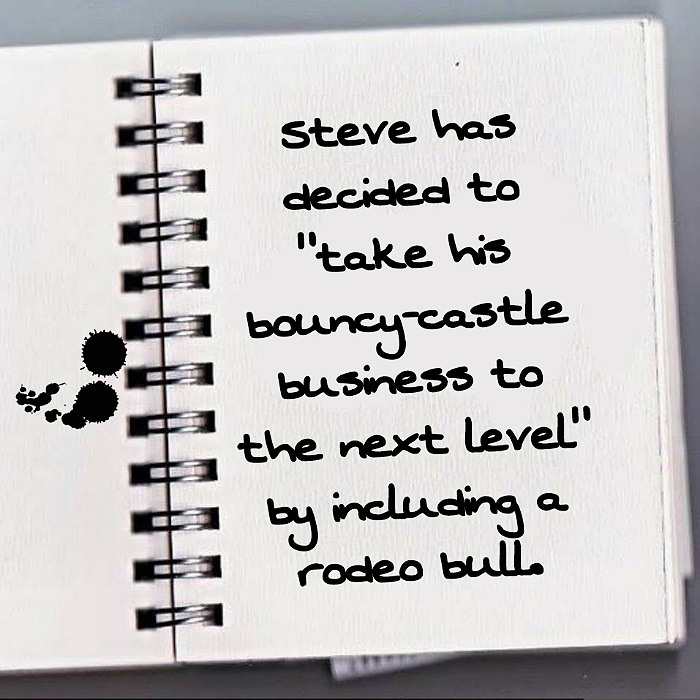 Steve has
decided to
"take his
bouncy-castle
business to
the next level"
by including a
rodeo bull.